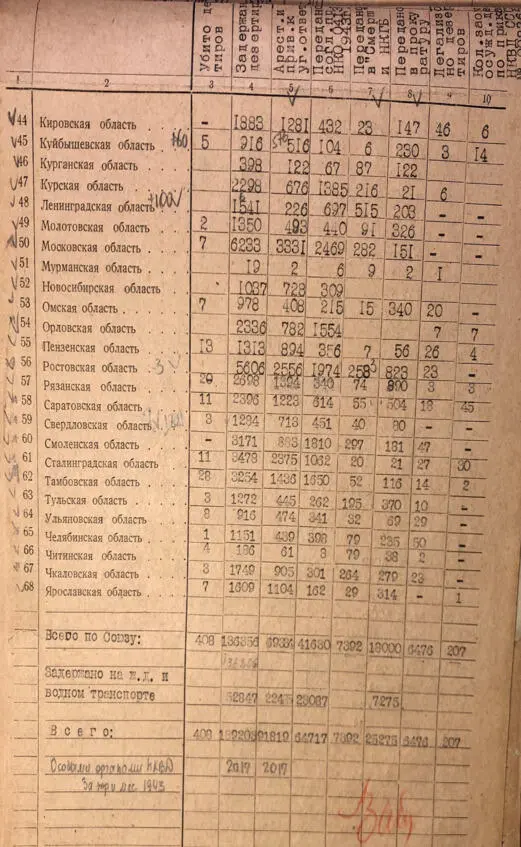 Убито де
тиров
Задержа
дезерта
Арест. и
прив. к
уг. ответ
Передан
НКО 0413
1943г.
Передан
в "Смерш
и НКГБ
Передано
в проку
ратуру
Легализ
но дезе
тиров
осужд.
по прик
1 2 3 4 5 6 7 8 9 10
44 Кировская область . . . - 1883 1281 432 23 147 46 6
45 Куйбышевская область . 5 916 516 104 6 230 3 14
46 Курганская область . . . 398 122 67 87 122
47 Курская область . . . . 2298 676 1385 216 21 6
48 Ленинградская область 1541 226 697 515 203 - -
49 Молотовская область . . 2 1350 493 440 91 326 - -
50 Московская область . . . 7 6233 3331 2469 282 151 - -
51 Мурманская область . . . 19 2 6 9 2 1
52 Новосибирская область 1037 728 309
53 Омская область . . . . . 7 978 408 215 15 340 20 -
54 Орловская область . . . . 2336 782 1554 7 7
55 Пензенская область . . . 13 1313 894 356 7 56 26 4
56 Ростовская область . . . 5606 2556 1974 253 823 23 -
57 Рязанская область . . . 74 3 3
58 Саратовская область . . . 11 2396 1223 614 55 504 18 45
59 Свердловская область 3 1234 713 451 40 80 - -
60 Смоленская область . . . - 3171 1810 297 181 47 -
61 Сталинградская область 11 3479 2375 1062 20 21 27 30
62 Тамбовская область . . . 28 3254 1436 1650 52 116 14 2
63 Тульская область . . . . 3 1272 445 262 195 370 10 -
64 Ульяновская область . . . 8 916 474 341 32 69 29 -
65 Челябинская область . . . 1 1151 439 398 79 235 50 -
66 Читинская область . . . 4 186 61 3 79 38 2 -
67 Чкаловская область . . . 3 1749 905 301 264 279 23 -
68 Ярославская область . . . 7 1609 1104 162 29 314 - 1
Всего по Союзу: 408 136356 41630 7392 18000 6476 207
Задержано на ж.д. и
водном транспорте 52847 23087 7275
Всего: 408 64717 7392 25275 6476 207
Особыми органами НКВД 2017 2017
За три мес. 1943